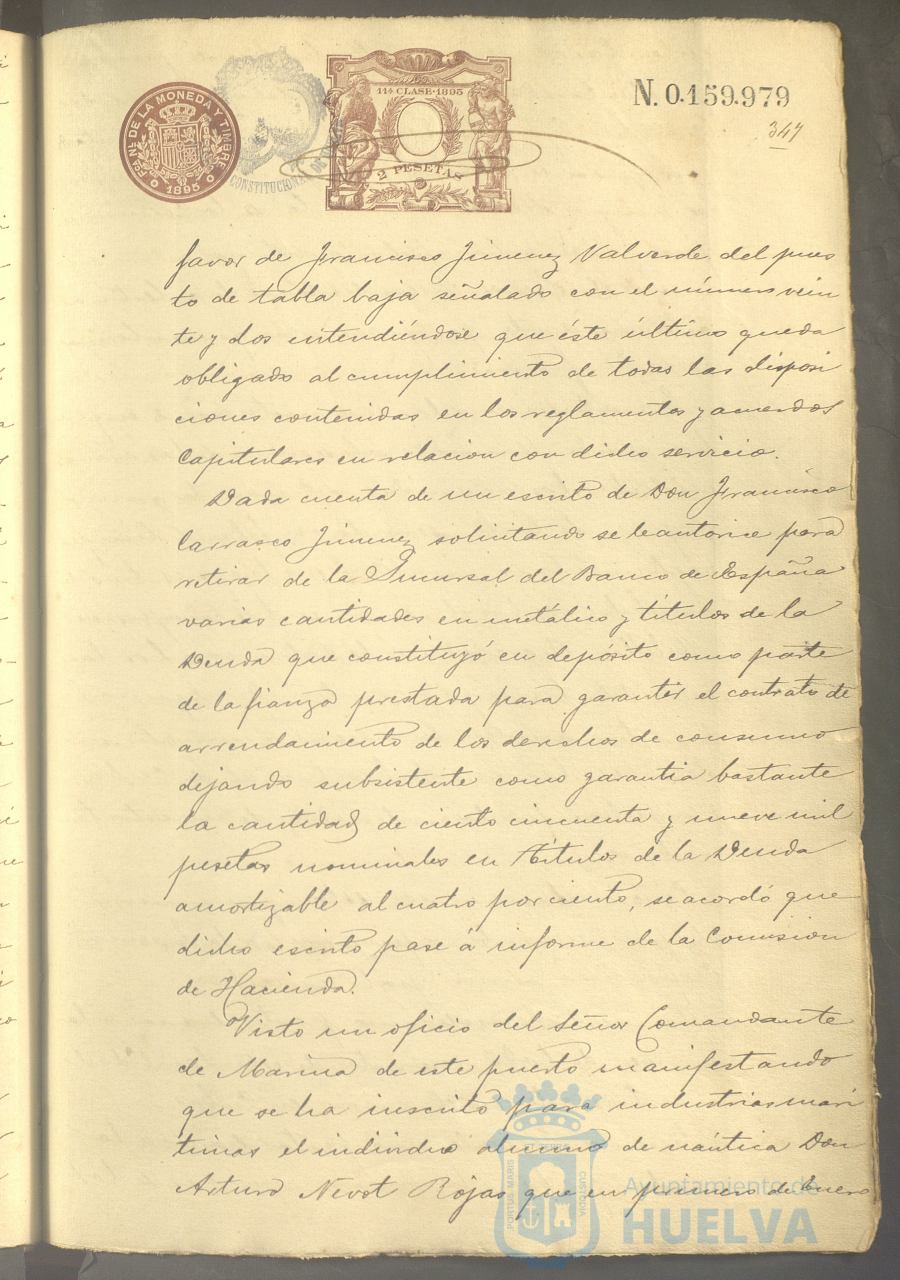 FCA. NL. DE LA MONEDA Y TIMBRE
1895
CONSTITUCIONAL DE
11ª CLASE·1895
2 PESETAS
N. 0.159.979
347
favor de Francisco Jimenez Valverde del pues
to de tabla baja señalado con el número vein
te y dos entendiéndose que éste último queda
obligado al cumplimiento de todas las disposi
ciones contenidas en los reglamentos y acuerdos
Capitulares en relacion con dicho servicio.
Dada cuenta de un escrito de Don Francisco
Carrasco Jimenez solicitando se le autorice para
retirar de la Sucursal del Banco de España
varias cantidades en metálico y títulos de la
Deuda que constituyó en depósito como parte
de la fianza prestada para garantir el contrato de
arrendamiento de los derechos de consumo
dejando subsistente como garantia bastante
la cantidad de ciento cincuenta y nueve mil
pesetas nominales en Títulos de la Deuda
amortizable al cuatro por ciento, se acordó que
dicho escrito pase á informe de la Comision
de Hacienda.
Visto un oficio del Señor Comandante
de Marina de este puerto manifestando
que se ha inscrito para industrias marí
timas el individuo alumno de naútica Don
Arturo Nevot Rojas que en primero de Enero
PORTUS MARIS ET TERRE CUSTODIA
Ayuntamiento de
HUELVA